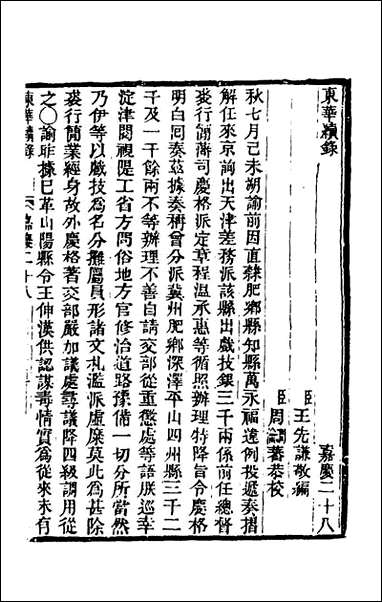 東華續錄
嘉慶二十八
臣王先謙敬編
臣周潤蕃恭校
秋七月己未朔諭前因直隸肥鄉縣知縣萬永福違例投遞奏摺
解任來京詢出天津差務派該縣出戲技銀三千兩係前任總督
裘行簡藩司慶格派定章程溫承惠等循照辦理特降旨令慶格
明白回奏茲據奏稱曾分派冀州肥鄉深澤平山四州縣三千二
千及一千餘兩不等辦理不善自請交部從重懲處等語朕巡幸
淀津閱視隄工省方問俗地方官修治道路豫備一切分所當然
乃伊等以戲技為名分攤屬員形諸文札濫派虛糜莫此為甚除
裘行簡業經身故外慶格著交部嚴加議處尋議降四級調用從
之○諭昨據已革山陽縣令王伸漢供認謀毒情實為從來未有
東華續錄 嘉慶二十八